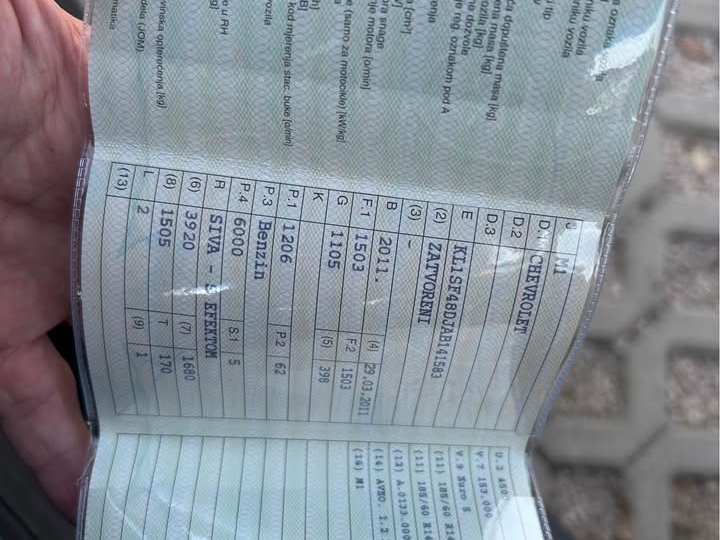 a oznaka vozila
niku vozila
niku vozila
i tip
ća dopuštena masa [kg]
ena masa [kg]
vozila [kg]
ne dozvole
je reg. oznakom pod A
enja
a [cm³]
ra snage
je motora [o/min]
e (samo za motocikle) [kW/kg]
h]
B]
kod mjerenja stac. buke [o/min]
rozila
e u RH
g]
vinska opterećenja [kg]
đela (JOM)
rmatika
J M1
D.1 CHEVROLET
D.2
D.3
E KL1SF48DJAB141583
(2) ZATVORENI
(3) -
B 2011. (4) 29.03.2011
F.1 1503 F.2 1503
G 1105 (5) 398
K
P.1 1206 P.2 62
P.3 Benzin
P.4 6000 S.1 5
R SIVA - S EFEKTOM
(6) 3920 (7) 1680
(8) 1505 T 170
L 2 (9) 1
(13)
U.2 450
V.7 153.000
V.9 Euro 5
(11) 185/60 R14
(11) 185/60 R14
(12) A.0133.000
(14) AVEO. 1.2
(16) M1